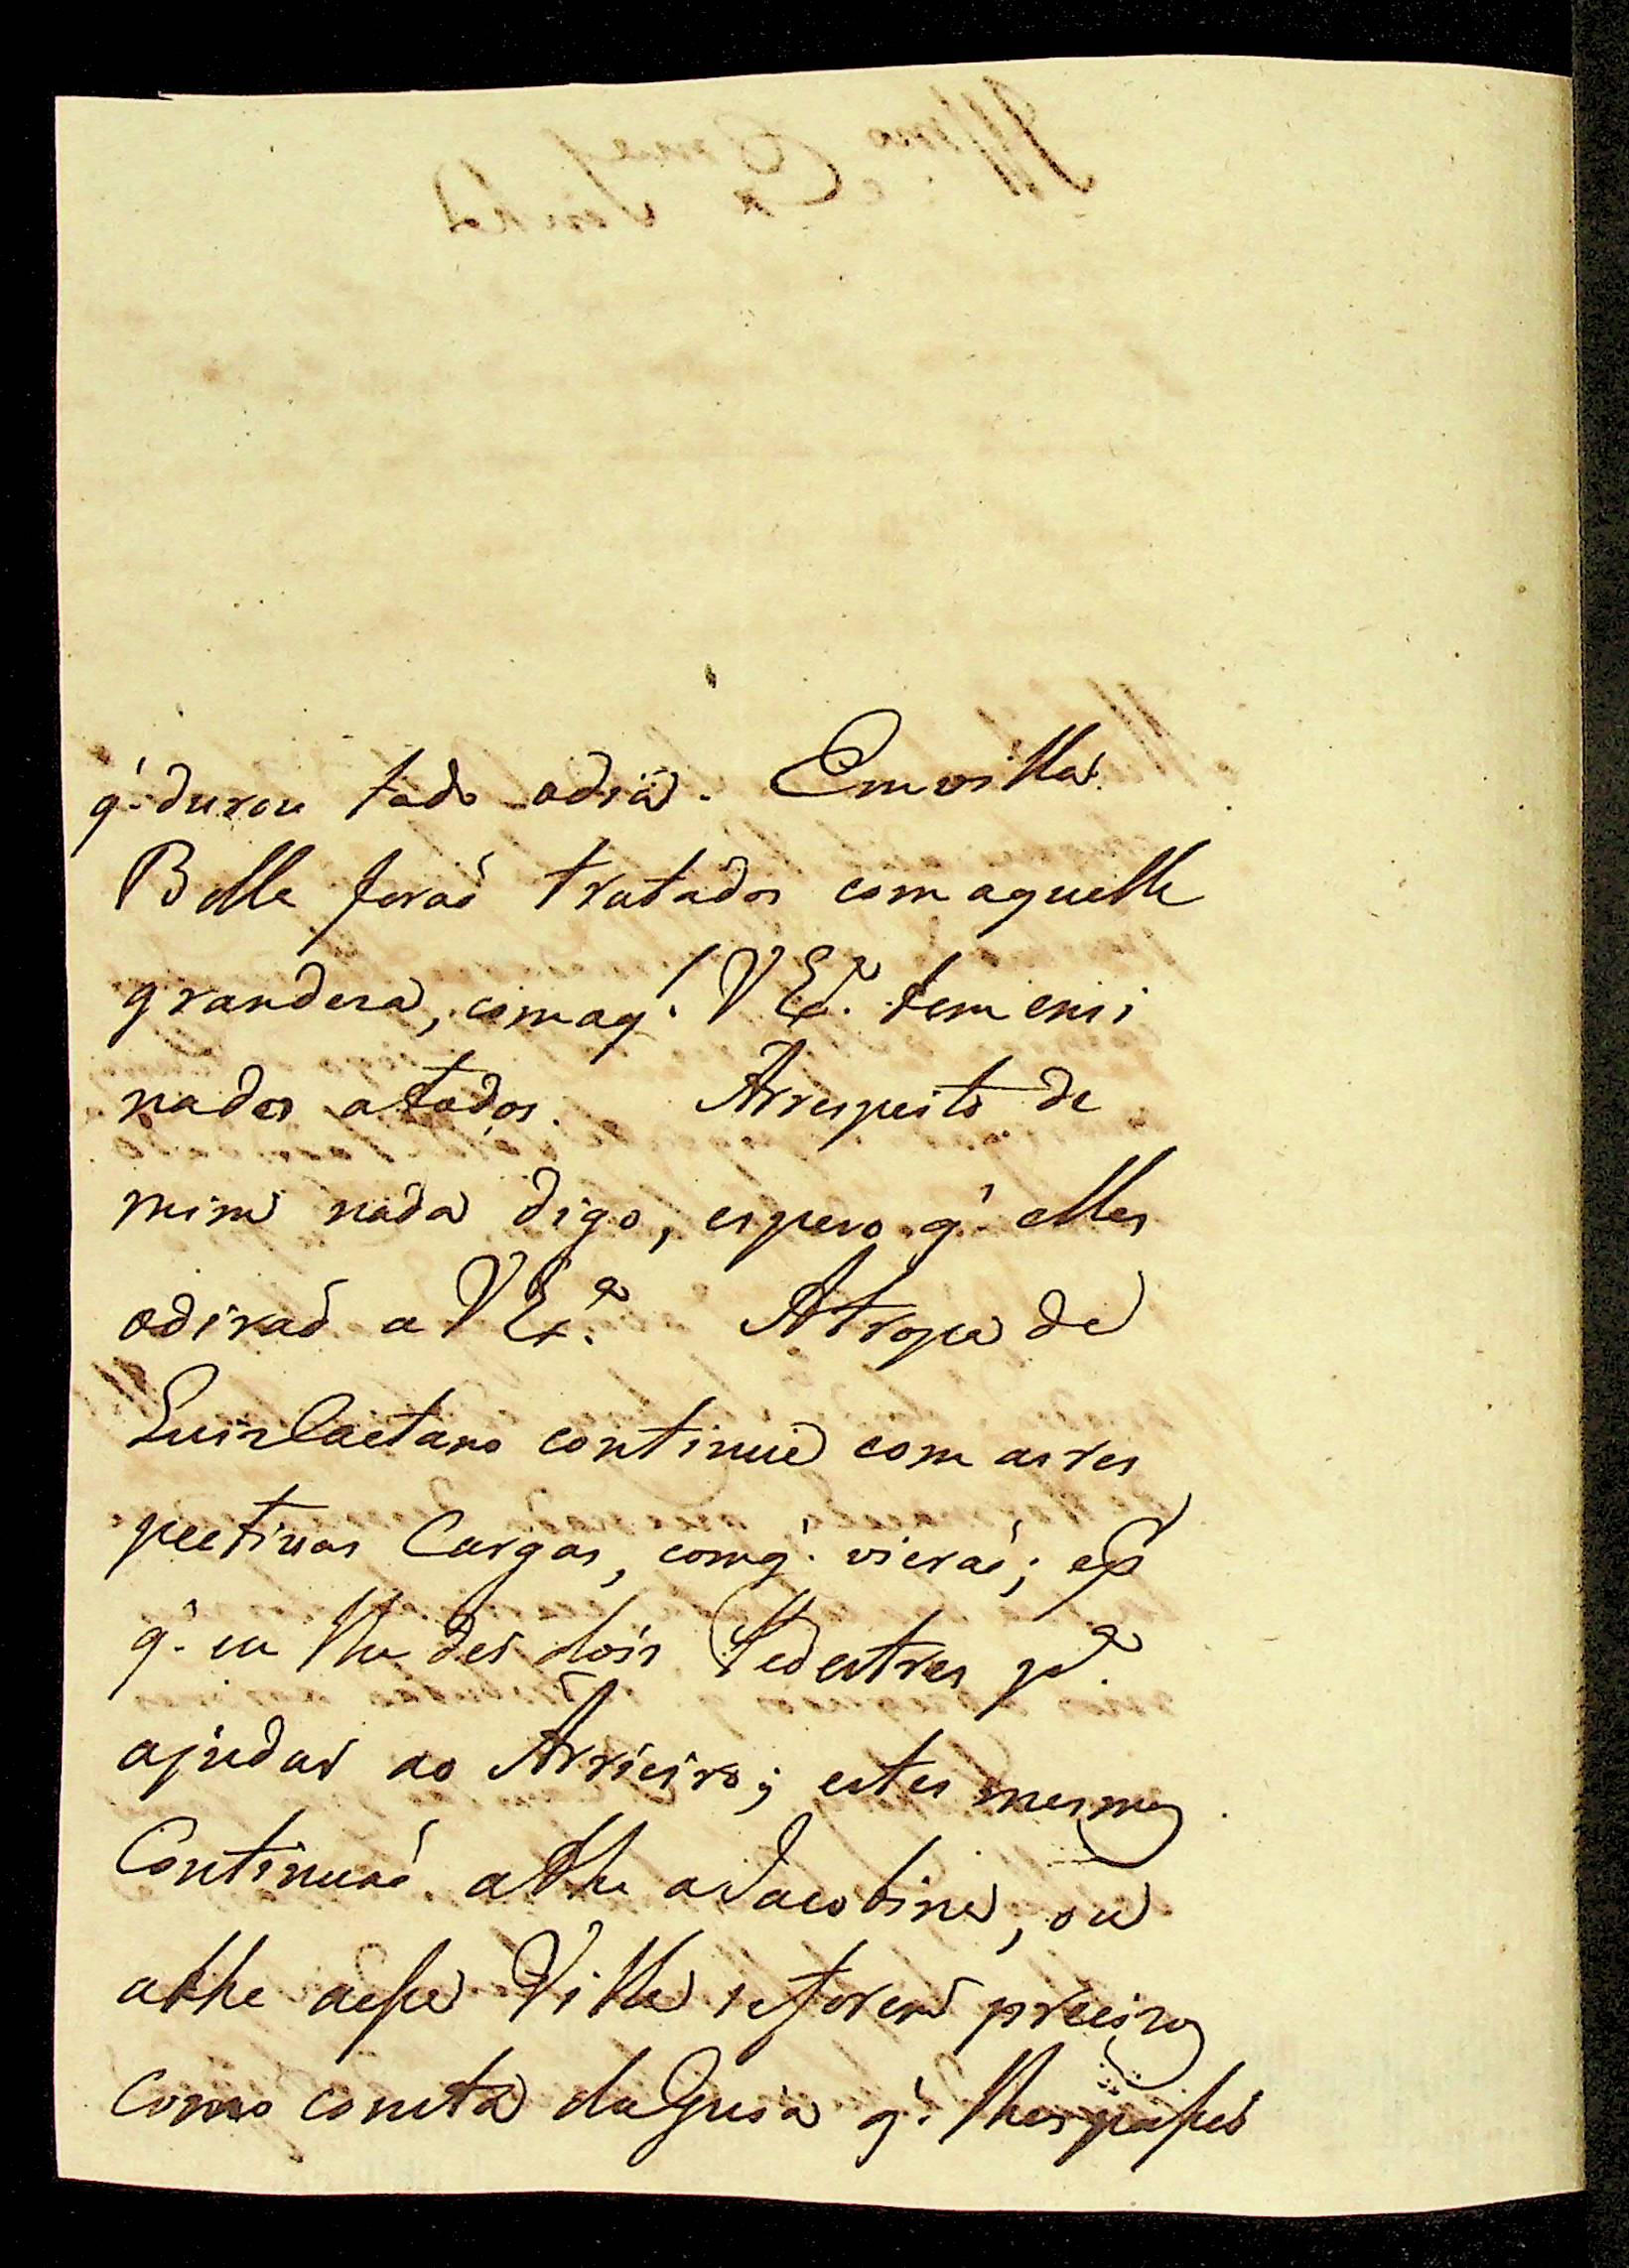 q.' durou todo odia. Emvilla
Bella foraõ tratados com aquella
grandeza, comaq.' V Ex.ª tem ensi
nados atodos. Arrespeito de
mim nada digo, espero q.' elles
odiraõ a V Ex.ª Atropa de
Luiz Caetano continua com as res
pectivas Cargas, comq.' vieraõ; e só
q.' eu lhe dei dois Pedestres p.ª
ajudar ao Arrieiro; estes mesmos
Continuaõ athe a Jacobina, ou
athe aessa Villa se forem precizos
como consta da Guia q.' lhes passei